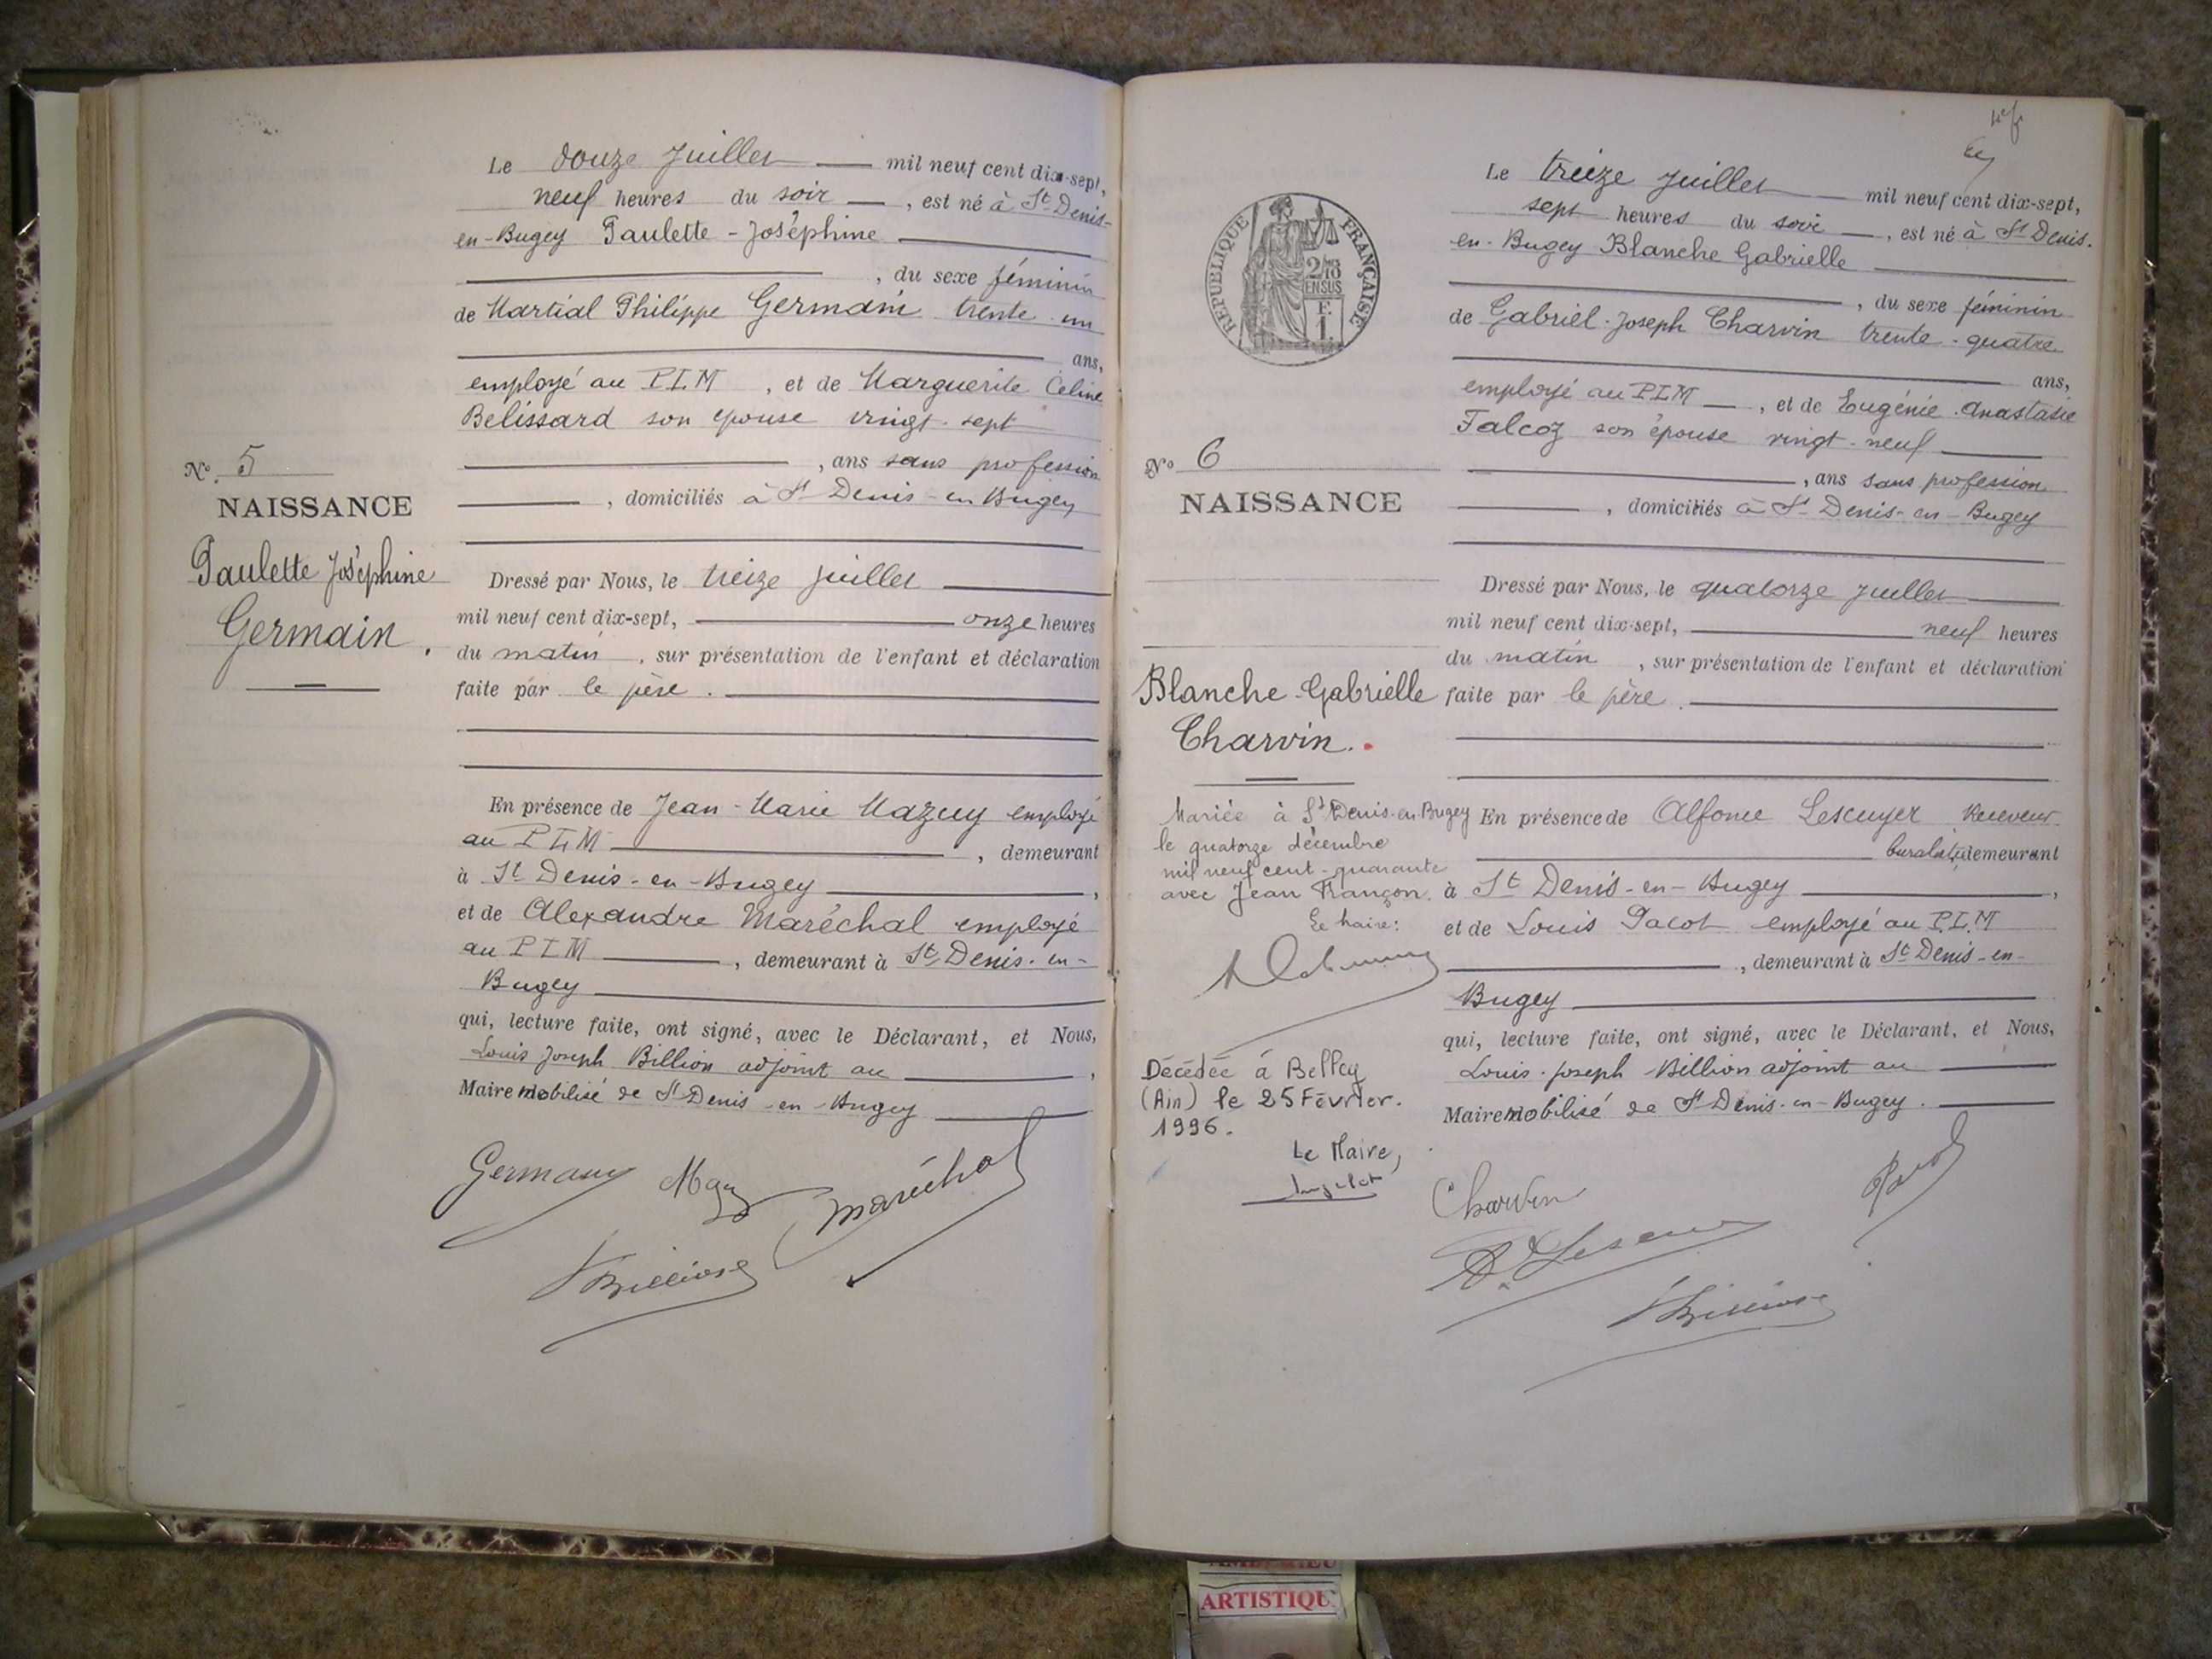 Le douze Juillet mil neuf cent dix-sept,
neuf heures du soir, est né à St Denis-
en-Bugey Paulette-Joséphine
, du sexe féminin
de Martial Philippe Germain trente un
ans,
employé au P.L.M, et de Marguerite Celine
Belissard son épouse vingt-sept
, ans sans profession
, domiciliés à St Denis-en-Bugey
No. 5
NAISSANCE
Paulette Joséphine
Germain.
Dressé par Nous, le treize juillet
mil neuf cent dix-sept, onze heures
du matin, sur présentation de l'enfant et déclaration
faite par le père.
En présence de Jean-Marie Mazuy employé
au P.L.M, demeurant
à St Denis-en-Bugey,
et de Alexandre Maréchal employé
au P L M, demeurant à St Denis-en-
Bugey
qui, lecture faite, ont signé, avec le Déclarant, et Nous,
Louis Joseph Billion adjoint au,
Maire mobilisé de St Denis-en-Bugey
Germain Mazuy Maréchal
Billion
Le treize Juillet mil neuf cent dix-sept,
sept heures du soir, est né à St Denis-
en-Bugey Blanche Gabrielle
, du sexe féminin
de Gabriel-Joseph Charvin trente-quatre
ans,
employé au P.L.M, et de Eugénie-Anastasie
Falcoz son épouse vingt-neuf
, ans sans profession
, domiciliés à St Denis-en-Bugey
RÉPUBLIQUE FRANÇAISE
No 6
NAISSANCE
Blanche-Gabrielle
Charvin.
Dressé par Nous, le quatorze juillet
mil neuf cent dix-sept, neuf heures
du matin, sur présentation de l'enfant et déclaration
faite par le père.
En présence de Alfonse Lescuyer Receveur
buraliste, demeurant
à St Denis-en-Bugey,
et de Louis Pacot employé au P.L.M
, demeurant à St Denis-en-
Bugey
qui, lecture faite, ont signé, avec le Déclarant, et Nous,
Louis-Joseph Billion adjoint au
Maire mobilisé de St Denis-en-Bugey.
Charvin
Billion
Mariée à St Denis-en-Bugey
le quatorze décembre
mil neuf cent-quarante
avec Jean Françon.
Le Maire:
Décédée à Belley
(Ain) le 25 Février
1996.
Le Maire,
ARTISTIQU